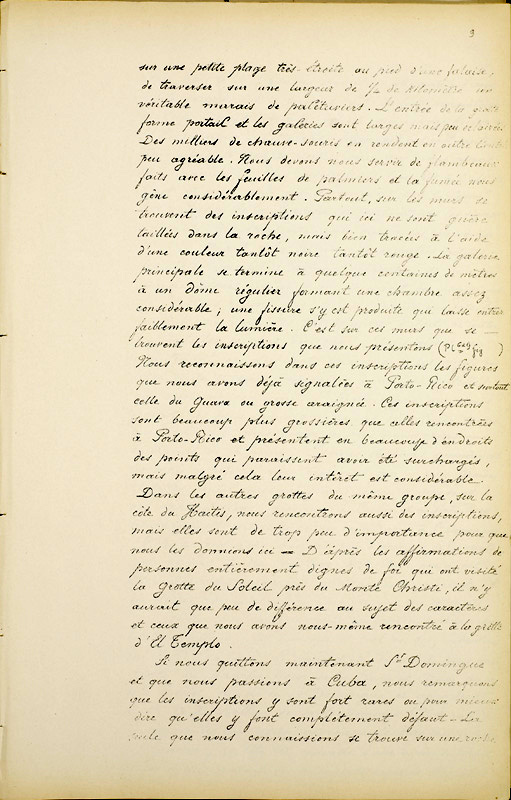 3
sur une petite plage très étroite au pied d'une falaise,
de traverser sur une largeur de ½ de kilomètre un
véritable marais de palétuviers. L'entrée de la grotte
forme portail et les galeries sont larges mais peu
Des milliers de chauve-souris en rendent en outre
peu agréable. Nous devons nous servir de flambeaux
faits avec les feuilles de palmiers et la fumée nous
gêne considérablement. Partout, sur les murs se
trouvent des inscriptions qui ici ne sont guère
taillées dans la roche, mais bien tracées à l'aide
d'une couleur tantôt noire tantôt rouge. La galerie
principale se termine à quelque centaines de mètres
à un dôme régulier formant une chambre assez
considérable; une fissure s'y est produite que laisse entrer
faillement la lumière. C'est sur ces murs que se
trouvent les inscriptions que nous présentons (Pl fig )
Nous reconnaissons dans ces inscriptions les figures
que nous avons déjà signalées à Porto-Rico et surtout
celle du Guava ou grosse araignée. Ces inscriptions
sont beaucoup plus grossières que celles rencontrées
à Porto-Rico et présentent en beaucoup d'endroits
des points qui paraissent avoir été surchargés,
mais malgré cela leur intérêt est considérable.
Dans les autres grottes du même groupe, sur la
côte du Haïtis, nous rencontrons aussi des inscriptions,
mais elles sont de trop peu d'importance pour que
nous les donnions ici = D'après les affirmations de
personnes entièrement dignes de foi qui ont visité
la Grotte du Soleil près du Monte Christi, il n'y
aurait que peu de différence au sujet des caractères
et ceux que nous avons nous-même rencontré à la grotte
d'El Templo.
Si nous quittons maintenant St Domingue
et que nous passions à Cuba, nous remarquons
que les inscriptions y sont fort rares ou pour mieux
dire qu'elles y font complètement défaut - La
seule que nous connaissions se trouve sur une roche